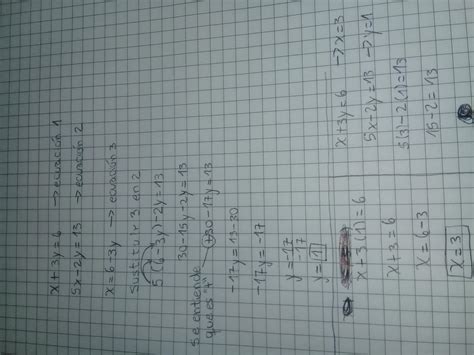 x + 3y = 6 → ecuación 1
5x - 2y = 13 → ecuación 2
x = 6 - 3y → ecuación 3
Sustituir 3 en 2
5 (6 - 3y) - 2y = 13
30 - 15y - 2y = 13
Se entiende
que es "+"
+30 - 17y = 13
-17y = 13 - 30
-17y = -17
y = -17
-17
y = 1
x + 3 (1) = 6
x + 3 = 6
x = 6 - 3
x = 3
x + 3y = 6 → x = 3
5x - 2y = 13 → y = 1
5(3) - 2(1) = 13
15 - 2 = 13